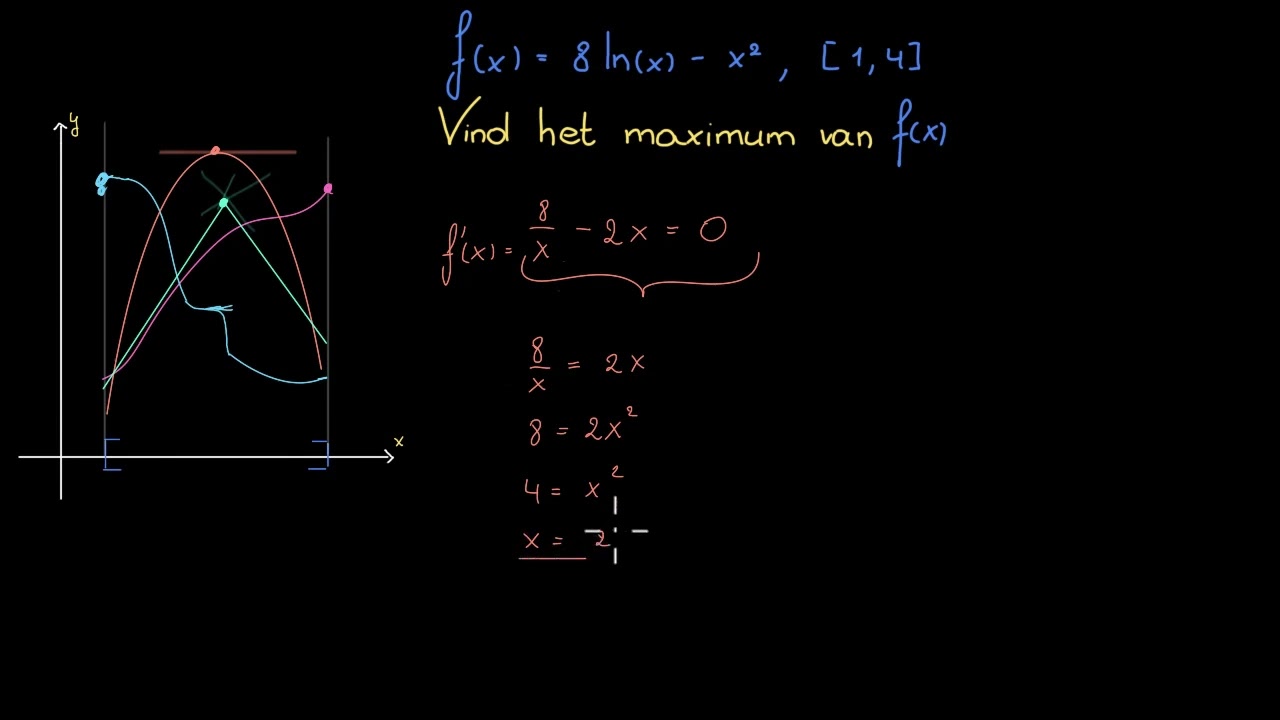 f(x) = 8 ln(x) - x², [1,4]
Vind het maximum van f(x)
y
f'(x) = 8/x - 2x = 0
8/x = 2x
8 = 2x²
x
4 = x²
x = 2